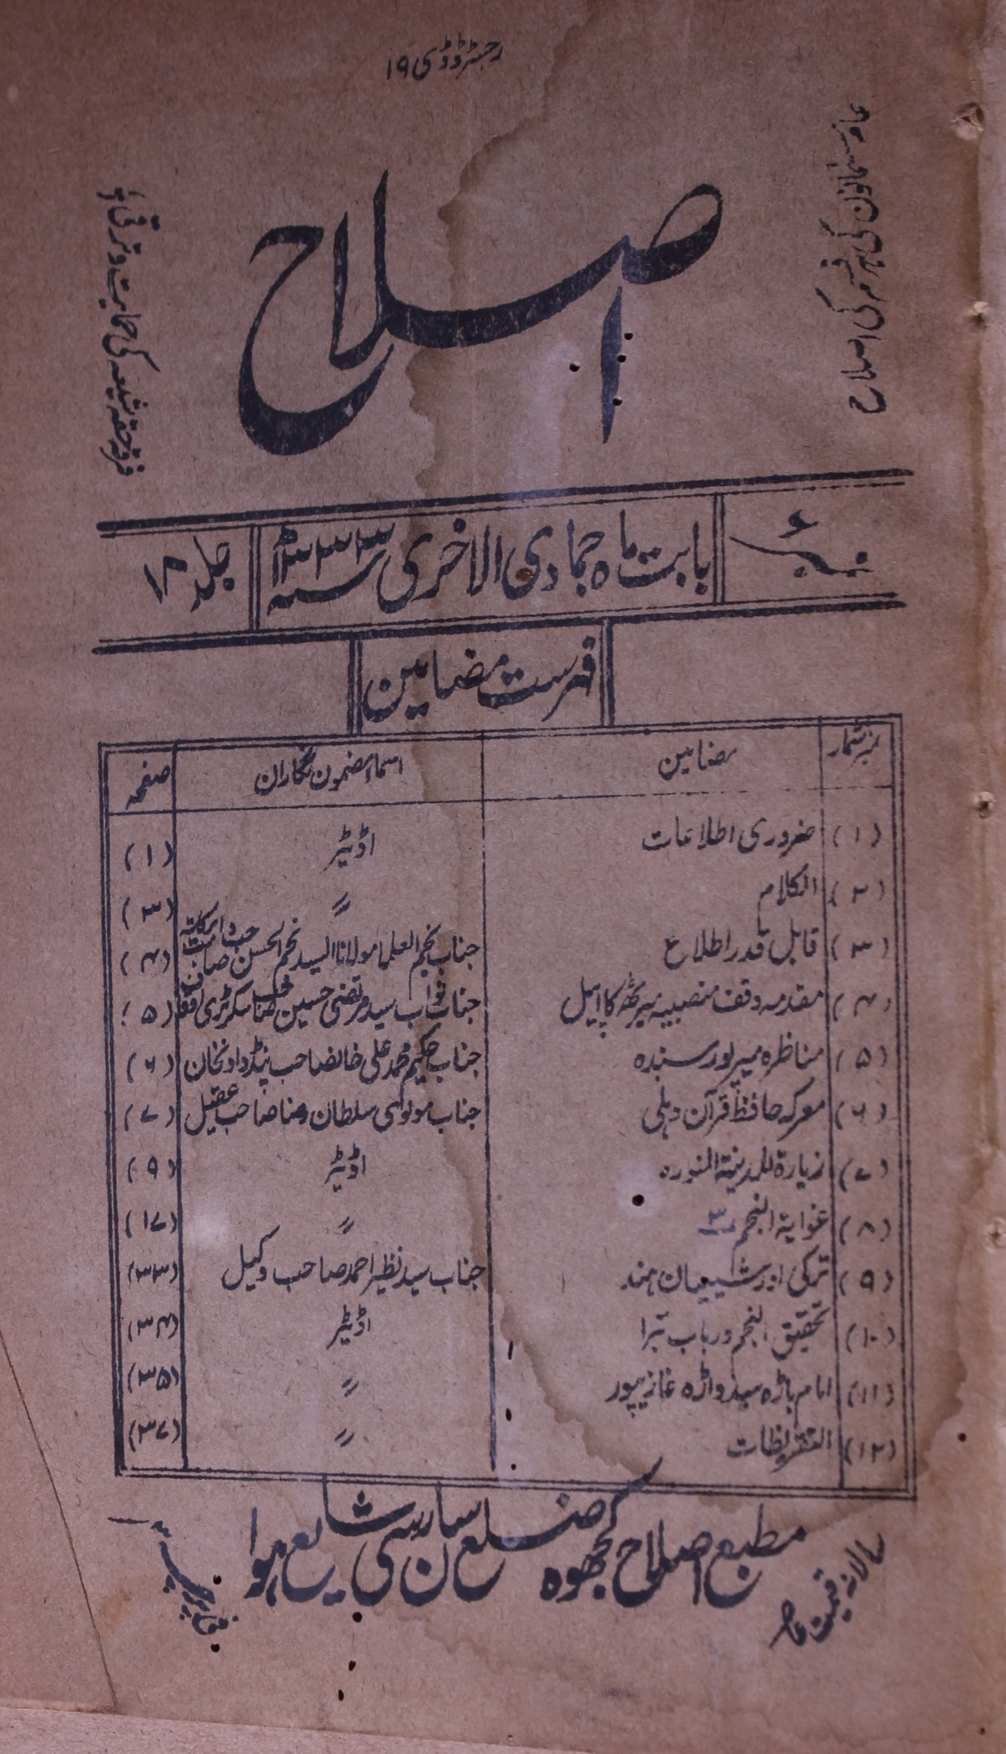 رجسٹرڈ ڈی ١٩
عامۂ مسلمانون کی ہر قسم کی اصلاح
اصلاح
فرقۂ حقہ شیعہ کی حمایت و ترقی
نمبر ۶
بابت ماہ جمادی الاخری سنہ ۱۳۳۳ھ
جلد ۱۸
فہرست مضامین
نمبر شمار مضامین اسماء مضمون نگاران صفحہ
(۱) ضروری اطلاعات اڈیٹر (۱)
(۲) الکلام ״ (۳)
(۳) قابل قدر اطلاع جناب نجم العلما مولانا السید نجم الحسن صاحب دامت برکاتہ (۴)
(۴) مقدمہ وقف منصبیہ میرٹھ کا اپیل جناب نواب سید مرتضی حسین خانصاحب سکرٹری وقف (۵)
(۵) مناظرہ میرپور سندہ جناب حکیم محمد علی خانصاحب پنڈدادنخان (۶)
(۶) معرکہ حافظ قرآن دہلی جناب مولوی سلطان رضا صاحب عقیل (۷)
(۷) زیارۃ المدینۃ المنورہ اڈیٹر (۹)
(۸) غوایۃ النجم ۳ ״ (۱۷)
(۹) ترکی اور شیعیان ہند جناب سید نظیر احمد صاحب وکیل (۳۳)
(۱۰) تحقیق النجم در باب تبرا اڈیٹر (۳۴)
(۱۱) امام باڑہ سیدواڑہ غازیپور ״ (۳۵)
(۱۲) التقریظات ״ (۳۷)
مطبع اصلاح کھجوہ ضلع سارن سی شایع ہوا
سالانہ قیمت